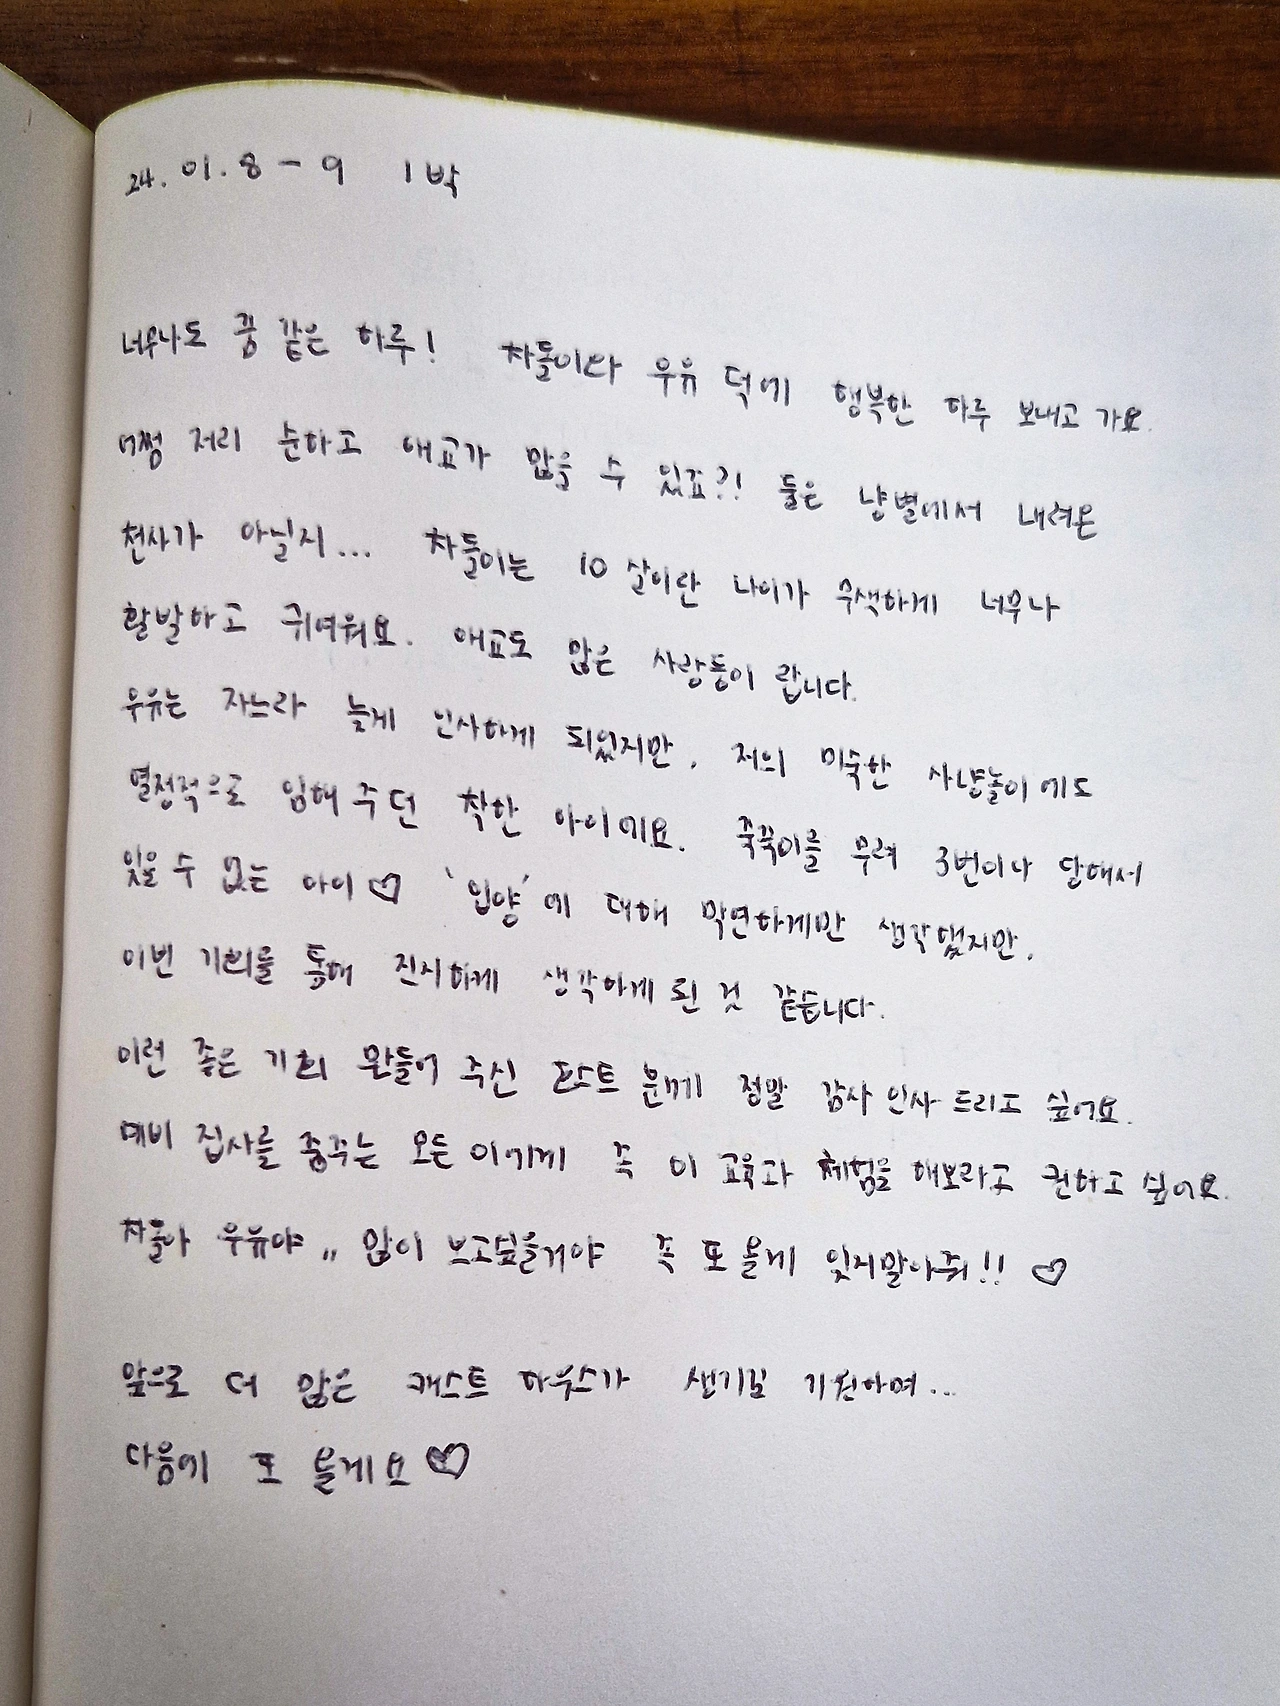 24. 01. 8 - 9 1박
너무나도 꿈 같은 하루! 차돌이와 우유 덕에 행복한 하루 보내고 가요.
어쩜 저리 순하고 애교가 많을 수 있죠?! 둘은 냥별에서 내려온
천사가 아닐지... 차돌이는 10살이란 나이가 무색하게 너무나
활발하고 귀여워요. 애교도 많은 사랑둥이 랍니다.
우유는 자느라 늦게 인사하게 되었지만, 저의 미숙한 사냥놀이에도
열정적으로 임해주던 착한 아이에요. 쭉쭉이를 무려 3번이나 달해서
잊을 수 없는 아이♡ '입양'에 대해 막연하게만 생각했지만,
이번 기회를 통해 진지하게 생각하게 된 것 같습니다.
이런 좋은 기회 만들어 주신 호스트 분께 정말 감사 인사 드리고 싶어요.
예비 집사를 꿈꾸는 모든 이에게 꼭 이 교육과 체험을 해보라고 권하고 싶어요.
차돌아 우유야,, 많이 보고싶을거야 꼭 또 올게 잊지말아줘!! ♡
앞으로 더 많은 캐스트 하우스가 생기길 기원하며...
다음에 또 올게요♡